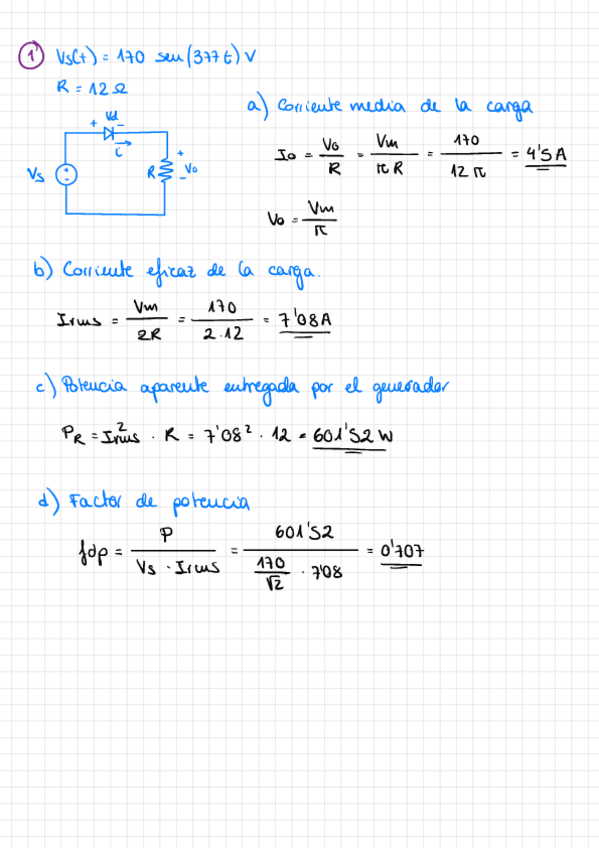 1 Vs(t) = 170 sen(377t) V
R = 12 Ω
+ Vd -
i
Vs
R
+
Vo
-
a) Corriente media de la carga
Io = Vo/R = Vm/(π R) = 170/(12 π) = 4'5 A
Vo = Vm/π
b) Corriente eficaz de la carga.
Irms = Vm/2R = 170/(2·12) = 7'08 A
c) Potencia aparente entregada por el generador
PR = Irms² · R = 7'08² · 12 = 601'52 W
d) Factor de potencia
fdp = P/(Vs · Irms) = 601'52/(170/√2 · 7'08) = 0'707